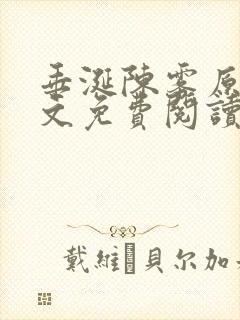 垂涎陳雾原
文免費閱讀
戴維 貝尔加